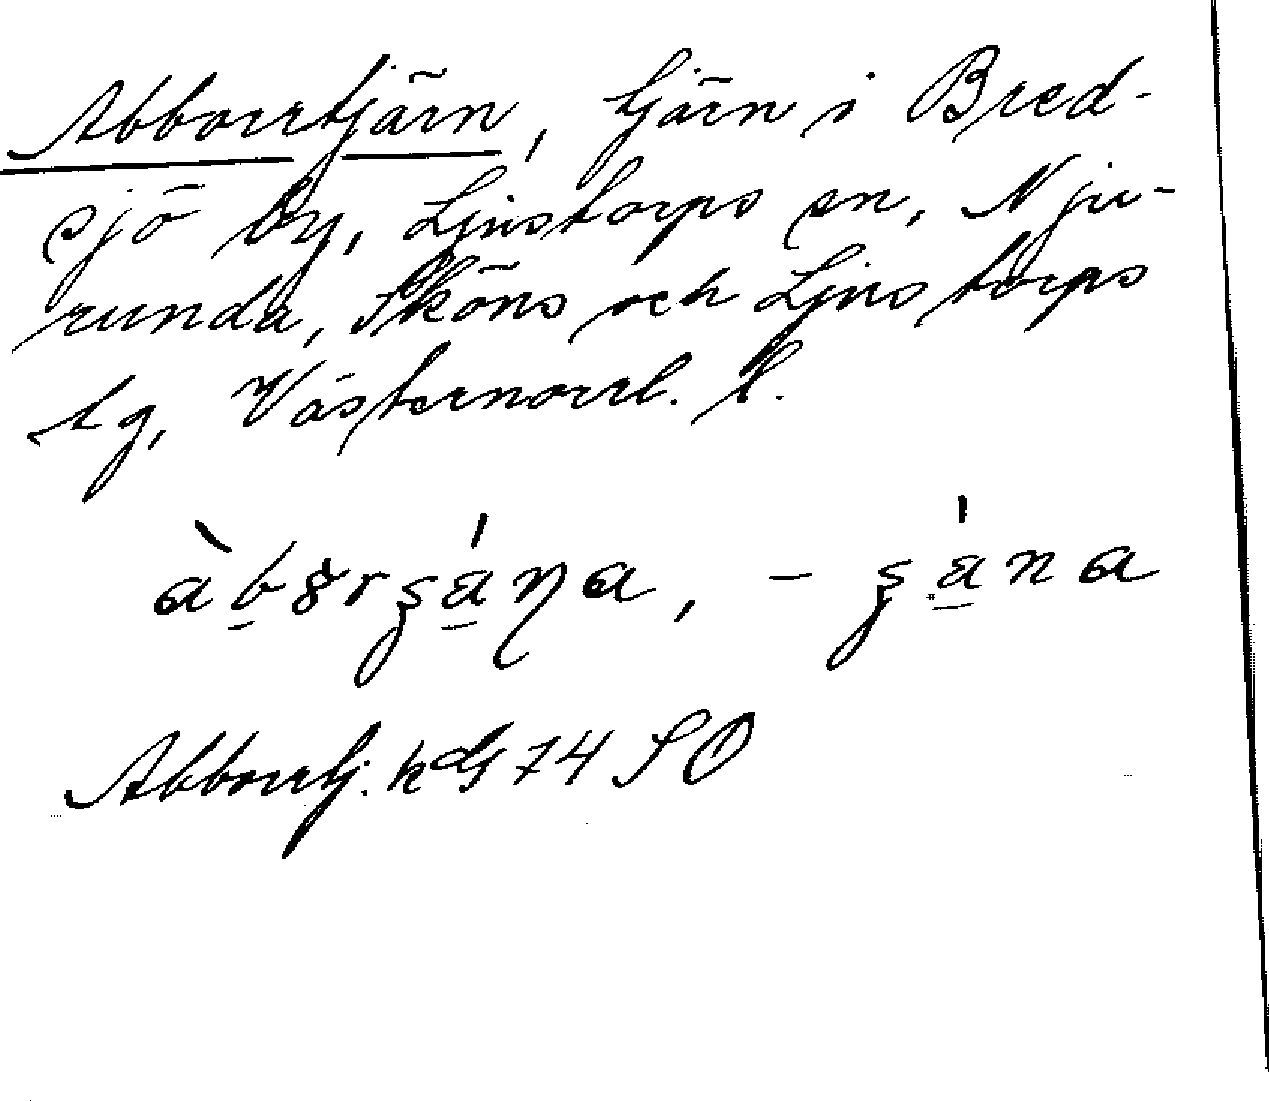 Abborrtjärn, tjärn i Bred-
sjö by, Ljustorps sn, Nju-
runda, Sköns och Ljustorps
tg, Västernorrl. l.
Abborrtj. kG 74 SO